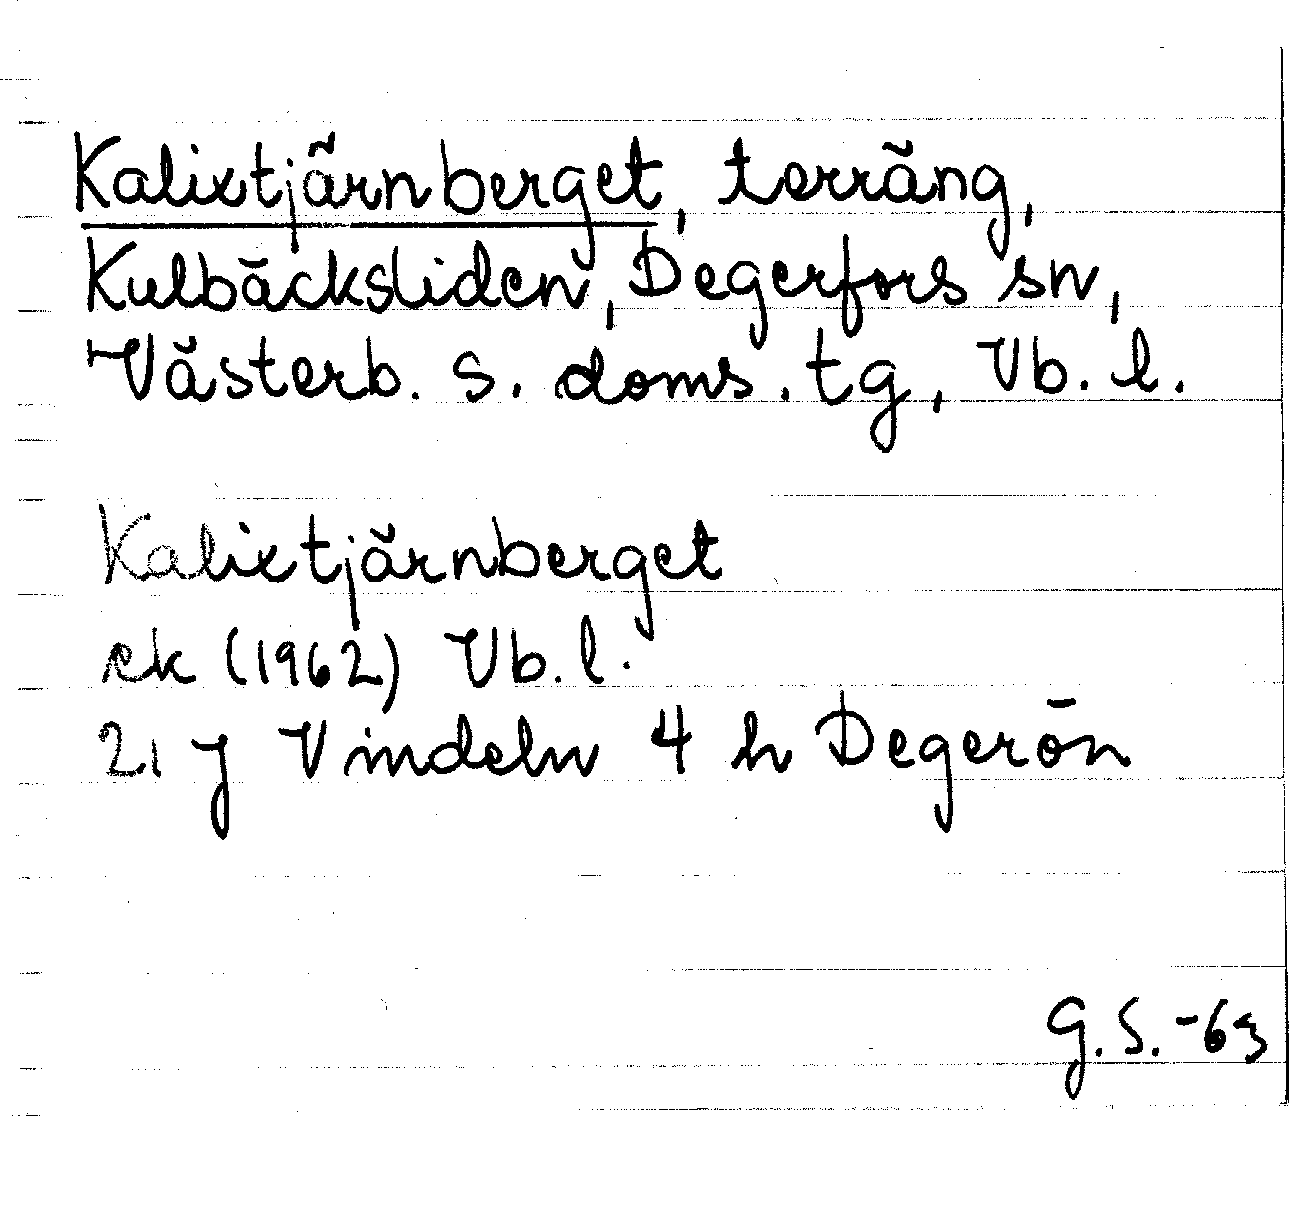 Kalixtjärnberget, terräng,
Kulbäcksliden, Degerfors sn,
Västerb. s. doms. tg, Vb. l.
Kalixtjärnberget
ek (1962) Vb. l.
21 J Vindeln 4 h Degerön
G. S. -63